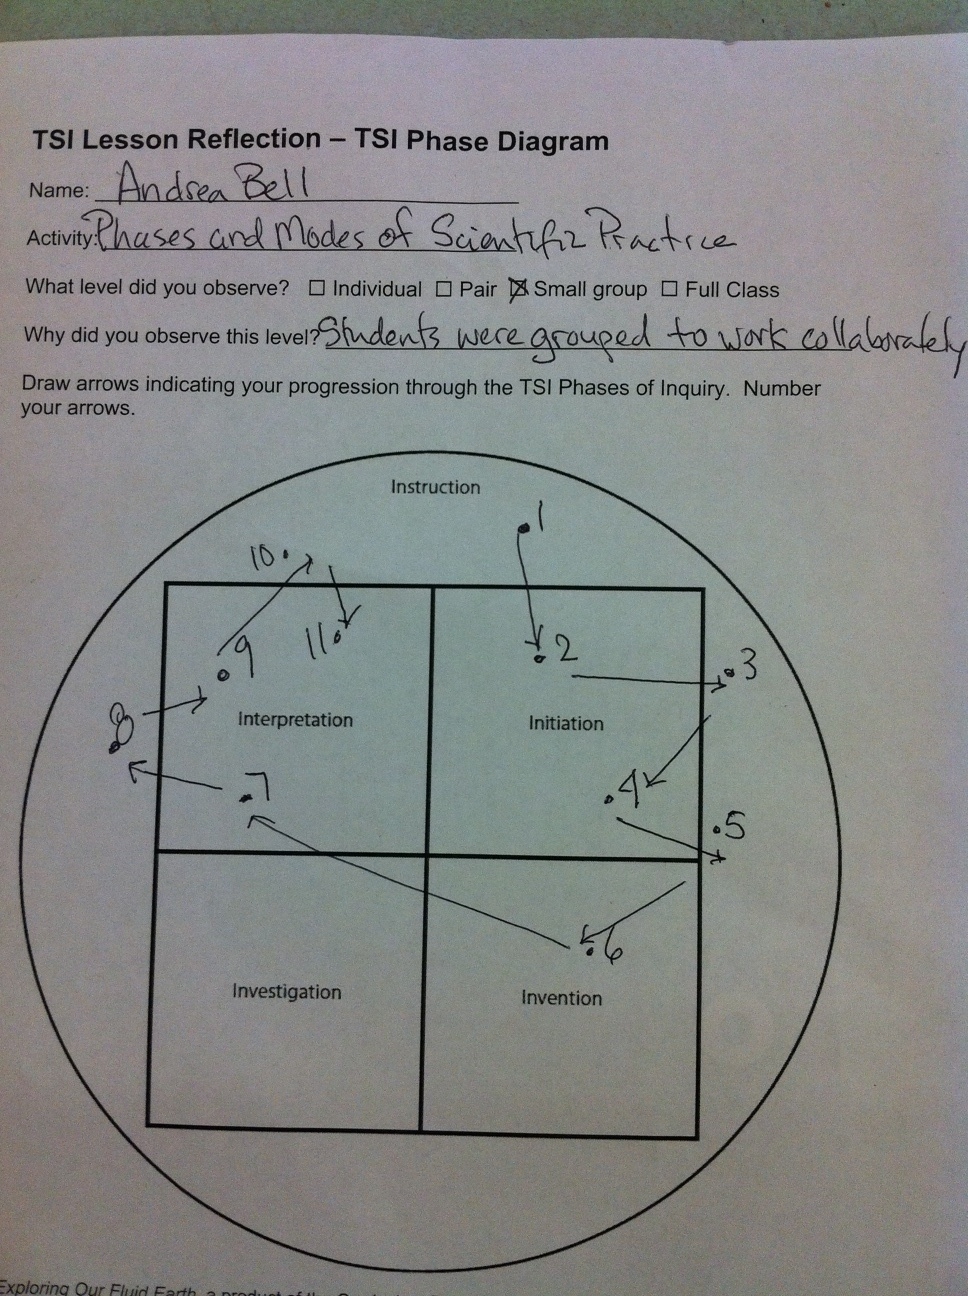 TSI Lesson Reflection – TSI Phase Diagram
Name: Andrea Bell
Activity: Phases and Modes of Scientific Practice
What level did you observe? ☐ Individual ☐ Pair ☒ Small group ☐ Full Class
Why did you observe this level? Students were grouped to work collaborately
Draw arrows indicating your progression through the TSI Phases of Inquiry. Number
your arrows.
Instruction
1
10
11
2
9
3
8
Interpretation
Initiation
7
4
5
6
Investigation
Invention
Exploring Our Fluid Earth, a product of the